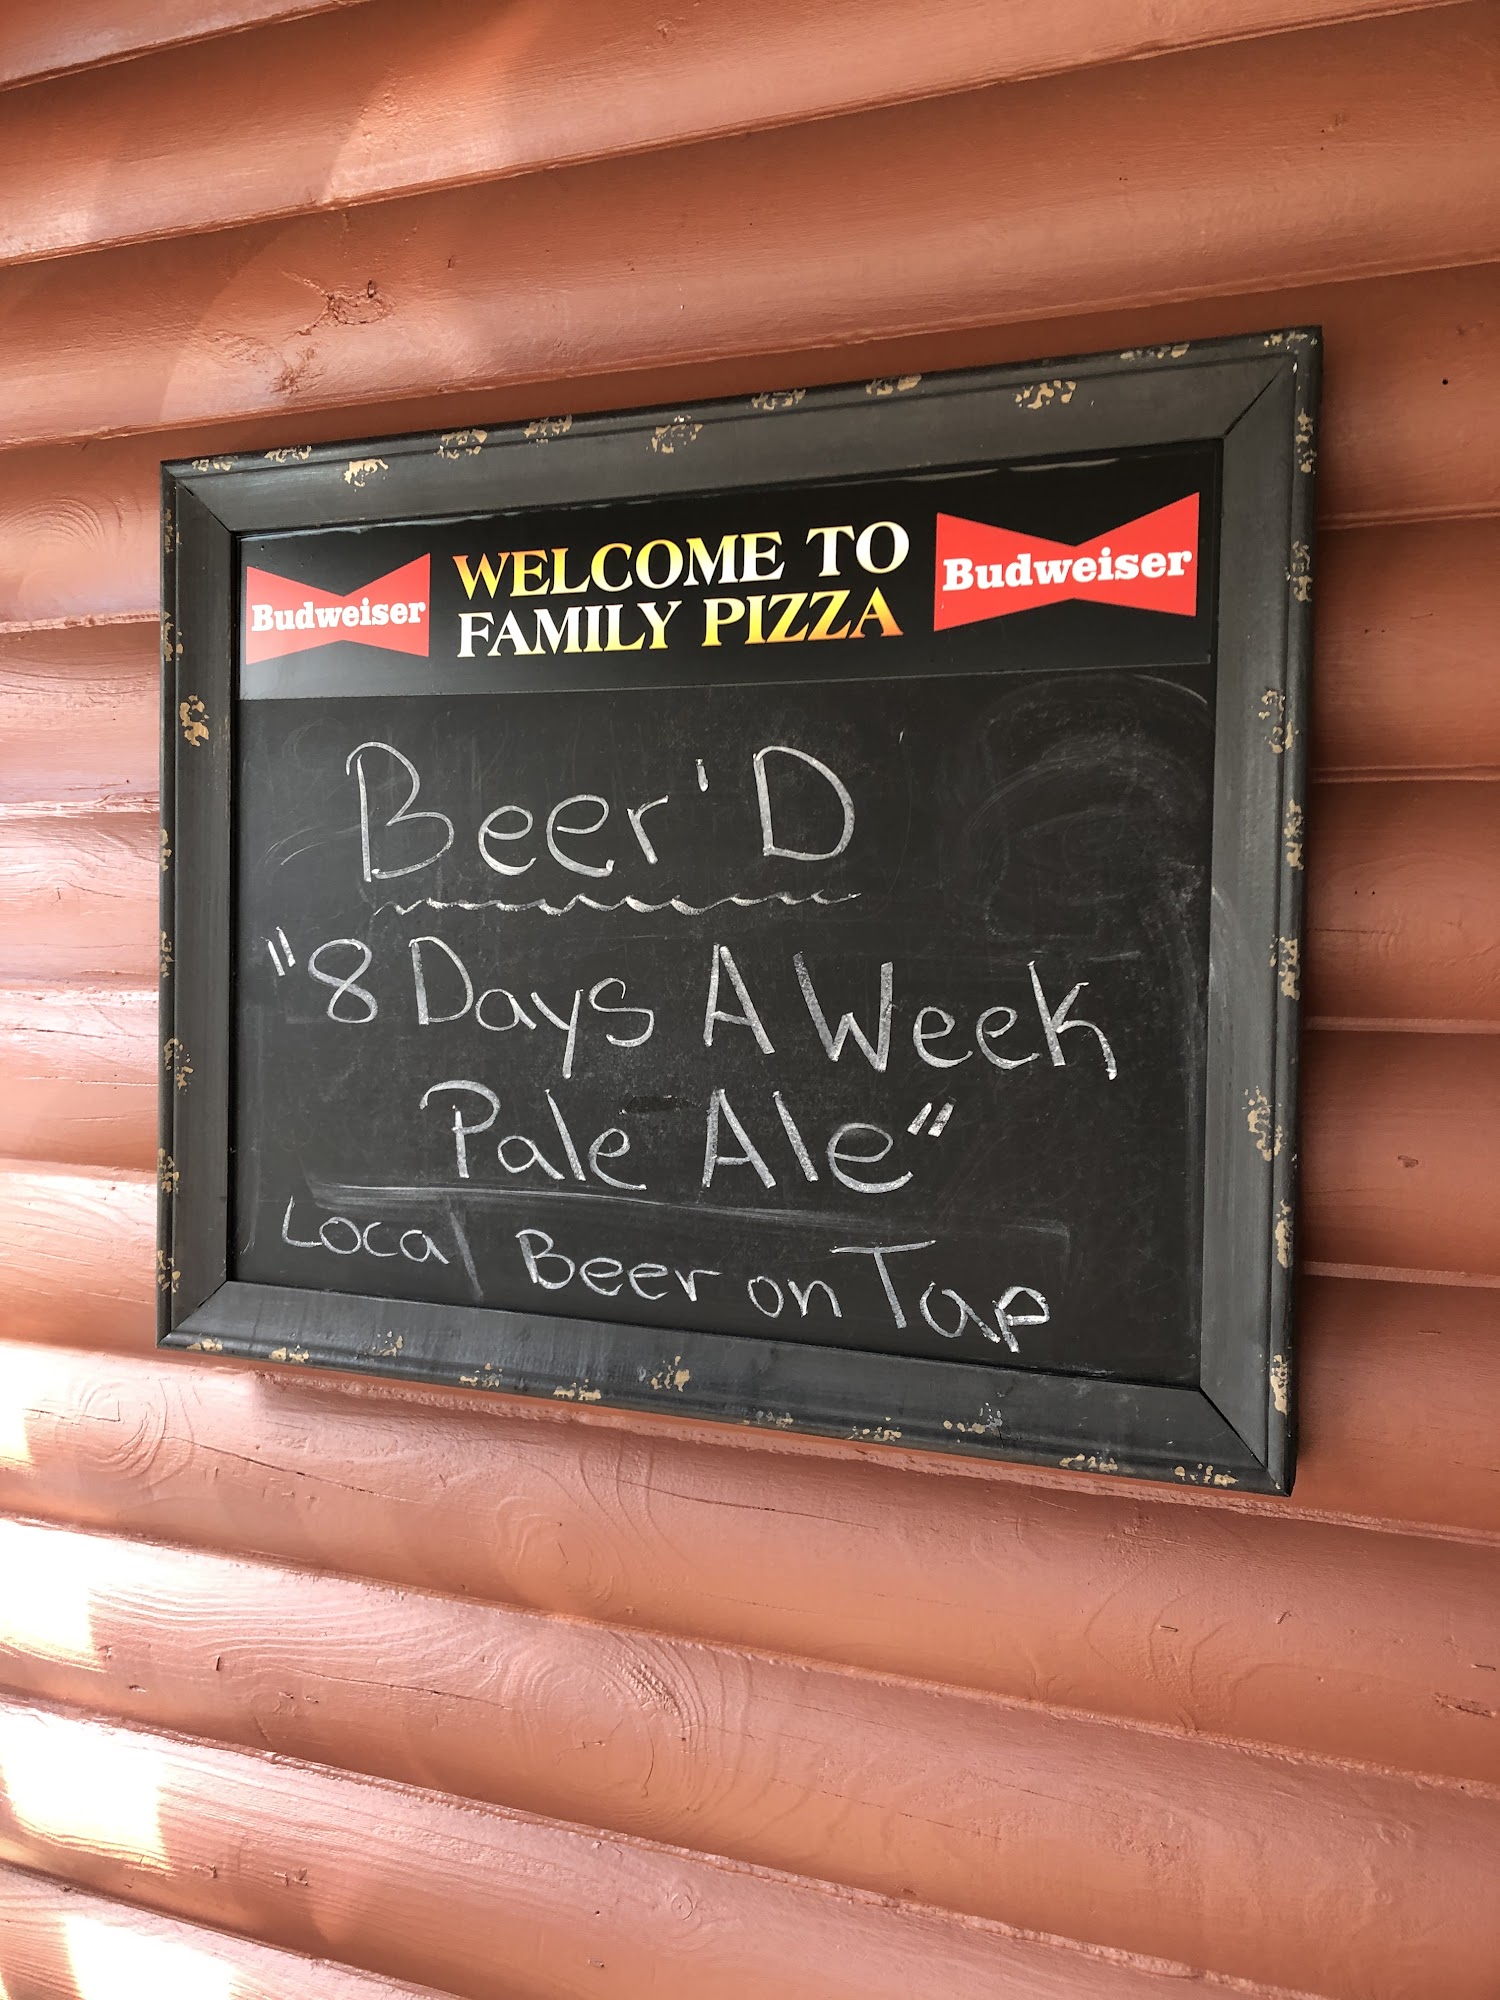 Budweiser
WELCOME TO
FAMILY PIZZA
Budweiser
Beer'D
"8 Days A Week
Pale Ale"
Local Beer on Tap